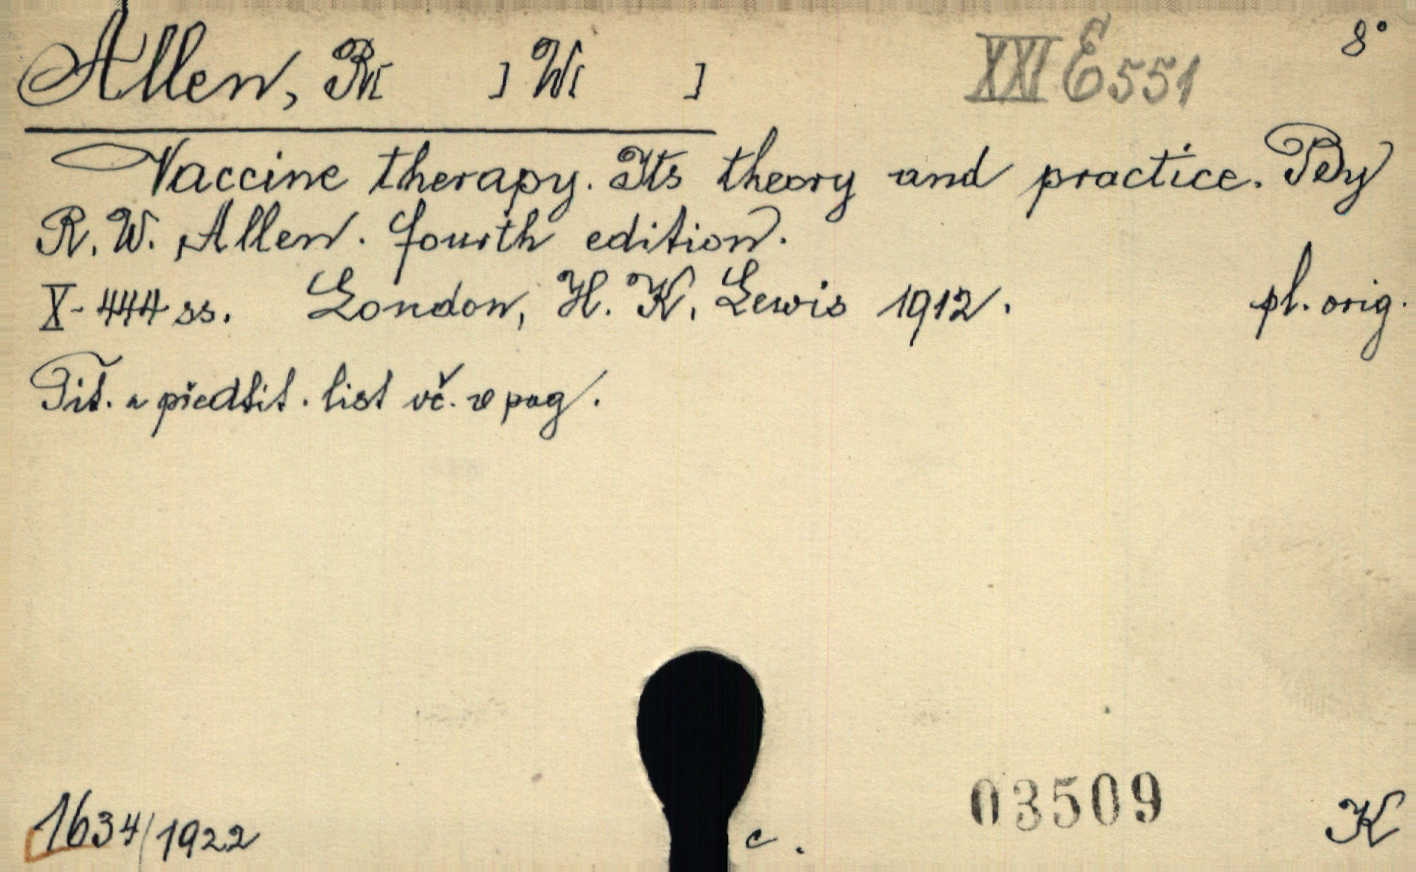 Allen, R[ ] W[ ] XXI E 551 8°
Vaccine therapy. Its theory and practice. By
R. W. Allen. fourth edition.
X-444 ss. London, H. K. Lewis 1912. pl. orig.
Tit. a předtit. list vč. v pag.
1634/1922 c. 03509 K